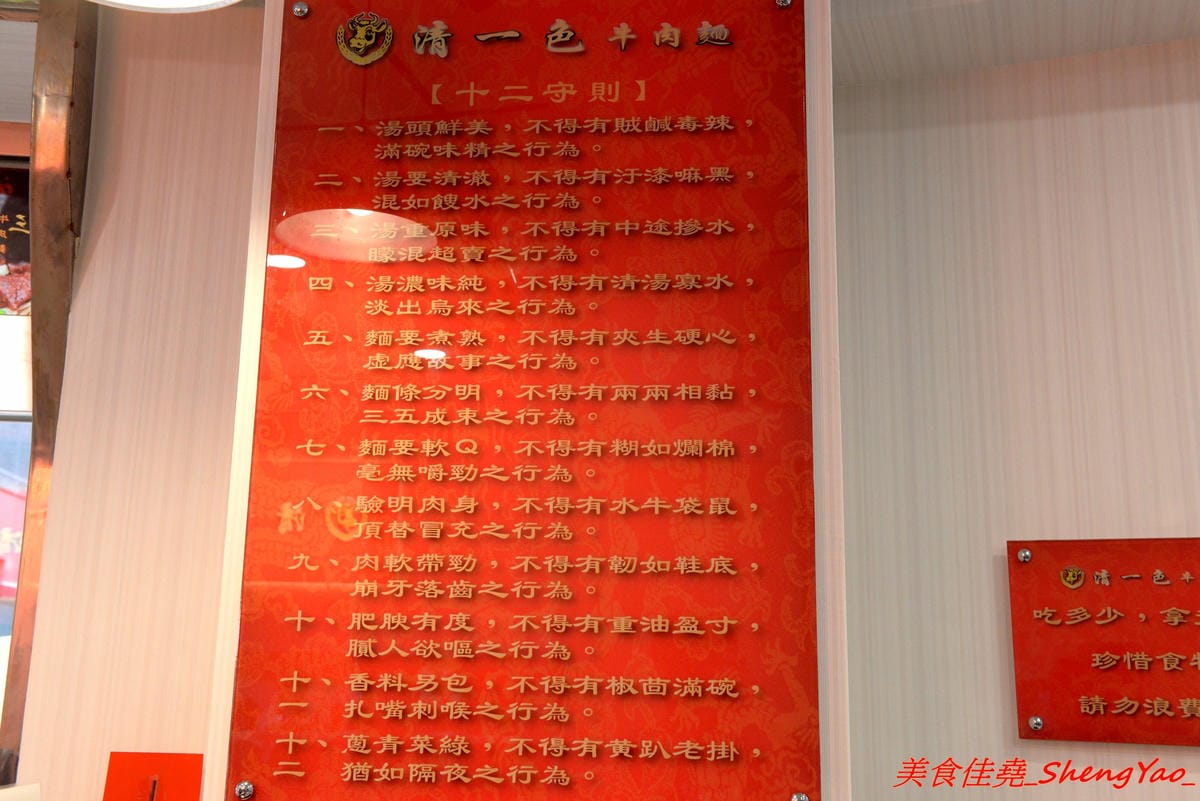 清一色牛肉麵
【十二守則】
一、湯頭鮮美，不得有賊鹹毒辣，
滿碗味精之行為。
二、湯要清澈，不得有汙漆嘛黑，
混如餿水之行為。
三、湯重原味，不得有中途摻水，
矇混超賣之行為。
四、湯濃味純，不得有清湯寡水，
淡出烏來之行為。
五、麵要煮熟，不得有夾生硬心，
虛應故事之行為。
六、麵條分明，不得有兩兩相黏，
三五成束之行為。
七、麵要軟Q，不得有糊如爛棉，
毫無嚼勁之行為。
八、驗明肉身，不得有水牛袋鼠，
頂替冒充之行為。
九、肉軟帶勁，不得有韌如鞋底，
崩牙落齒之行為。
十、肥腴有度，不得有重油盈寸，
膩人欲嘔之行為。
十一、香料另包，不得有椒茴滿碗，
扎嘴刺喉之行為。
十二、蔥青菜綠，不得有黃趴老掛，
猶如隔夜之行為。
清一色牛
吃多少，拿
珍惜食
請勿浪費
美食佳堯_ShengYao_